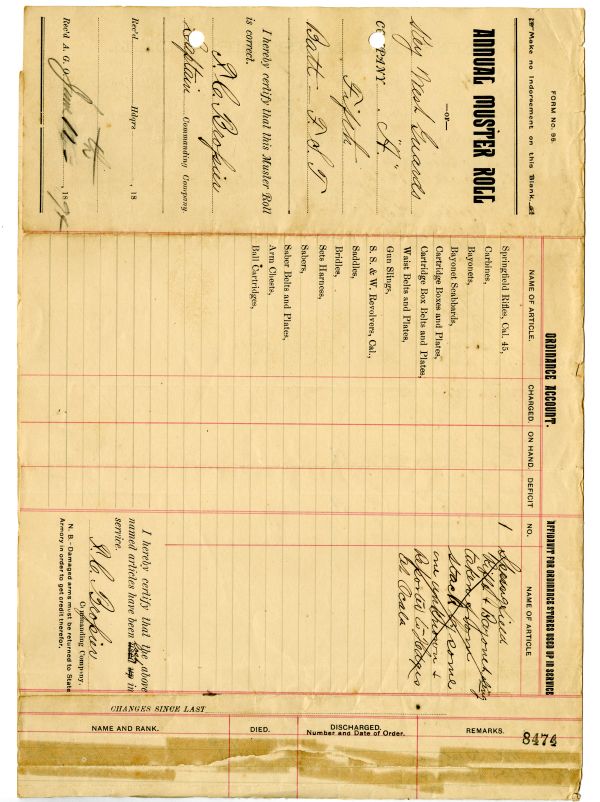 FORM No. 96
Make no Indorsement on this Blank.
ANNUAL MUSTER ROLL
—OF—
Key West Guards
COMPANY "A"
Fifth
Batt. F. S. T.
I hereby certify that this Muster Roll
is correct.
Captain Commanding Company.
Rec'd. Hdqrs 18
Rec'd A. G. O. 18
ORDINANCE ACCOUNT.
NAME OF ARTICLE. CHARGED. ON HAND. DEFICIT
Springfield Rifles, Cal. 45,
Carbines,
Bayonets,
Bayonet Scabbards,
Cartridge Boxes and Plates,
Cartridge Box Belts and Plates,
Waist Belts and Plates,
Gun Slings,
S. S. & W. Revolvers, Cal.,
Saddles,
Bridles,
Sets Harness,
Sabers,
Saber Belts and Plates,
Arm Chests,
Ball Cartridges,
AFFIDAVIT FOR ORDINANCE STORES USED UP IN SERVICE
NO. NAME OF ARTICLE
1 Springfield
Rifle & Bayonet
taken from
stack by some
one unknown &
Reported to Judges
at Ocala
I hereby certify that the above
named articles have been lost in
service.
Commanding Company.
N. B.—Damaged arms must be returned to State
Armory in order to get credit therefor.
CHANGES SINCE LAST
NAME AND RANK. DIED. DISCHARGED. REMARKS.
Number and Date of Order.
8474